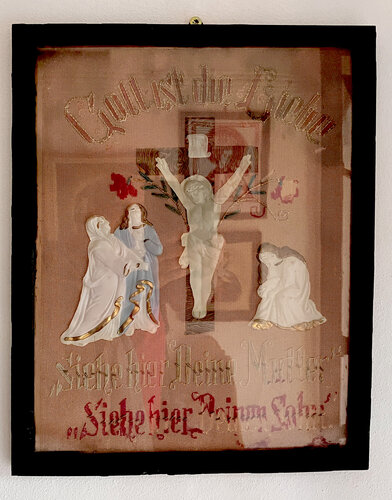 Gott ist die Liebe
„Siehe hier Deine Mutter“
„Siehe hier Deinen Sohn“